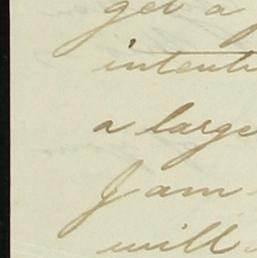 get a
intenti
a large
I am
will